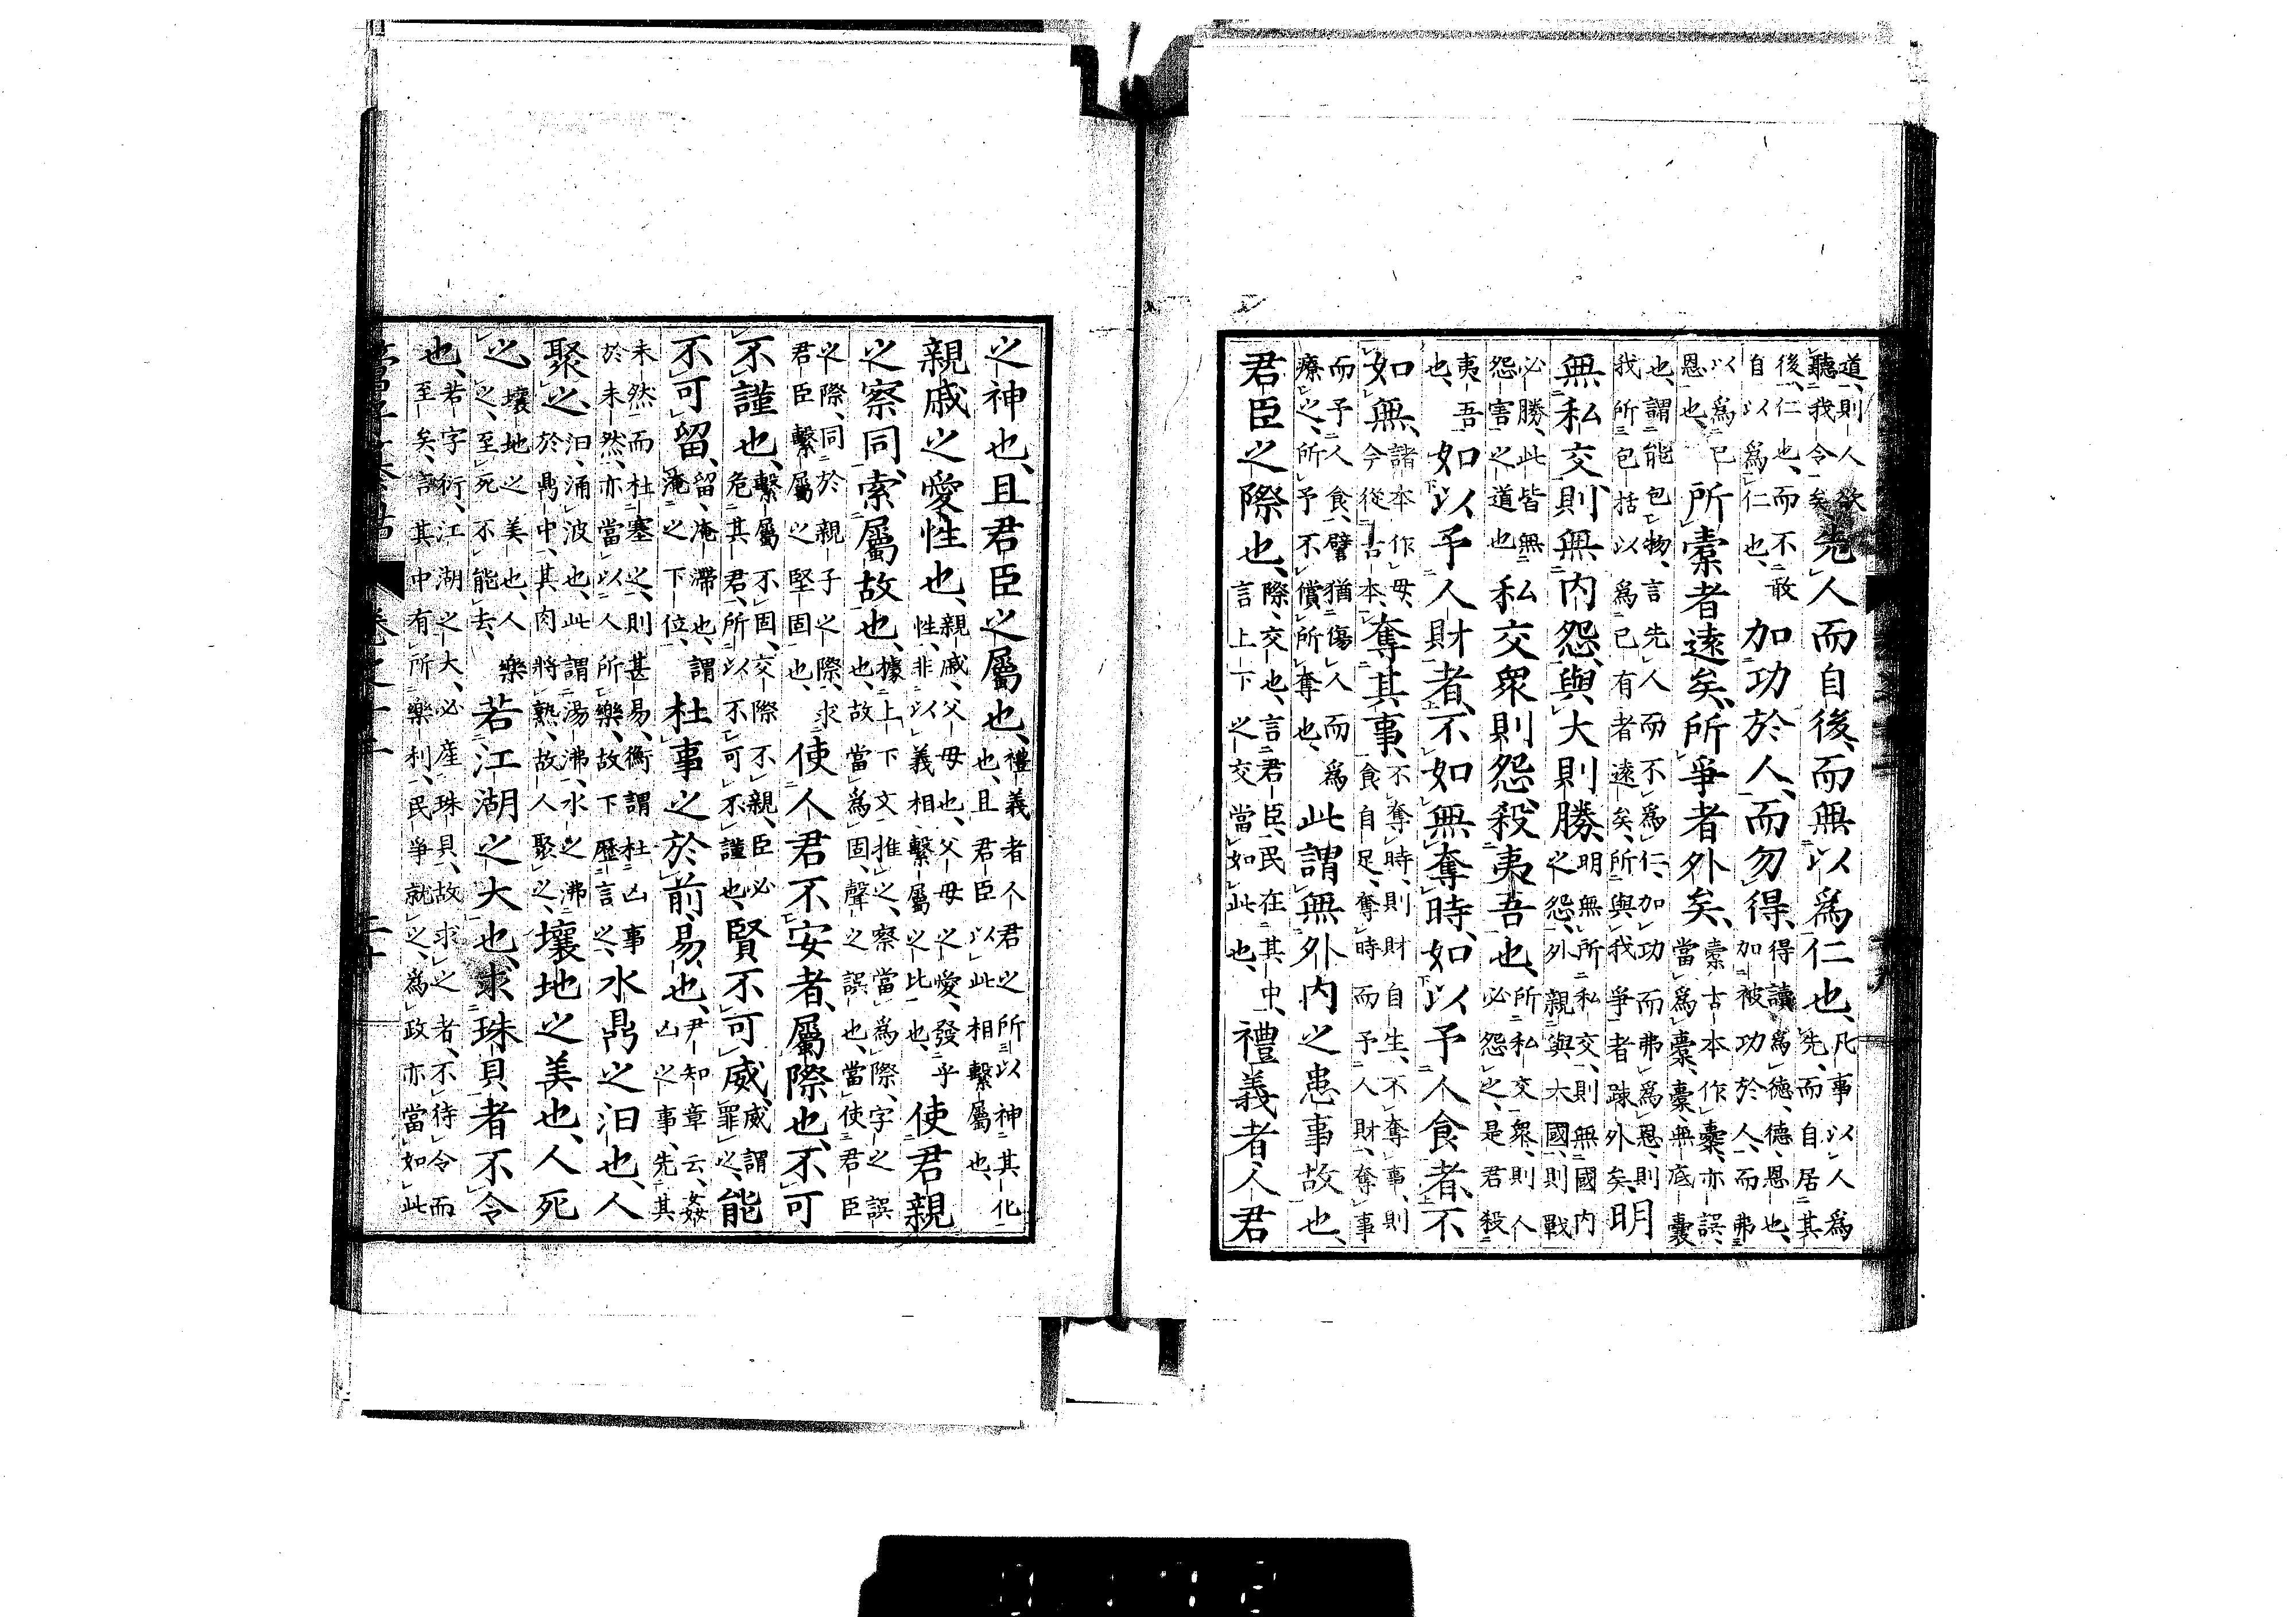 道、則人欲聽我令矣、先人而自後、而無以爲仁也、凡事以人爲先、而自居其
後、仁也、而不敢自以爲仁也、加功於人、而勿得、得讀爲德、德恩也、加被功於人、而弗
以爲己恩也、所橐者遠矣、所爭者外矣、橐古本作櫜、亦誤、當爲橐、橐無底囊
也、謂能包物、言先人而不爲仁、加功而弗爲恩、則我所包括以爲己有者遠矣、所與我爭者踈外矣、明
無私交、則無内怨、與大則勝、明無所私交、則無國内之怨、外親與大國、則戰
必勝、此皆無怨害之道也私交衆則怨殺、夷吾也、所私交衆、則人必怨之、是君殺
夷吾也、如以予人財者、不如無奪時、如以予人食者、不
如無諸本作毋、今從古本、奪其事、不奪時、則財自生、不奪事、則食自足、奪時而予人財、奪事
而予人食、譬猶傷人而爲療之、所予不償所奪也、此謂無外内之患事故也、
君臣之際也、際、交也、言君臣、民在其中、言上下之交當如此也、禮義者、人君
之神也、且君臣之屬也、禮義者人君之所以神其化也、且君臣以此相繫屬也、
親戚之愛、性也、親戚、父母也、父母之愛、發乎性、非以義相繫屬之比也、使君親
之察同、索屬故也、據上下文推之、察當爲際、字之誤也、故當爲固、聲之誤也、當使君臣
之際、同於親子之際、求君臣繫屬之堅固也、使人君不安者、屬際也、不可
不謹也、繫屬不固、交際不親、臣必危其君、所以不可不謹也、賢不可威、威謂罪之、能
不可留、留、淹滯也、謂淹之下位、杜事之於前、易也、尹知章云、姦凶之事、先其
未然而杜塞之、則甚易、衡謂杜凶事於未然、亦當以人所樂、故下歷言之、水鼎之汩也、人
聚之、汩、涌波也、此謂湯沸、水之沸於鼎中、其肉將熟、故人聚之、壤地之美也、人死
之壤地之美也、人樂之、至死不能去、若江湖之大也、求珠貝者不令
也、若字衍、江湖之大、必産珠貝、故求之者、不待令而至矣、言其中有所樂利、民爭就之、爲政亦當如此